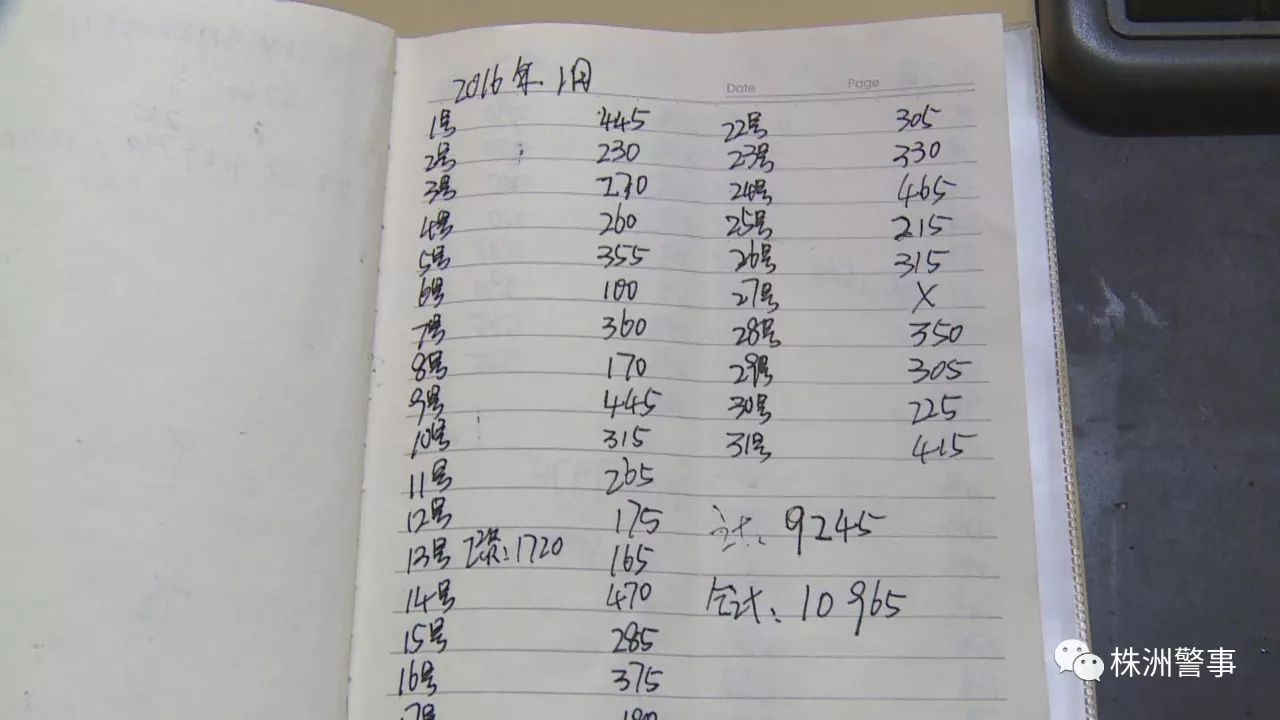 2016年.1月
Date Page
1号 445
2号 230
3号 270
4号 260
5号 355
6号 100
7号 360
8号 170
9号 445
10号 315
11号 265
12号 175
13号 :1720 165
14号 470
15号 285
16号 375
17号
22号 305
23号 330
24号 465
25号 215
26号 315
27号 X
28号 350
29号 305
30号 225
31号 415
9245
合计: 10965
株洲警事